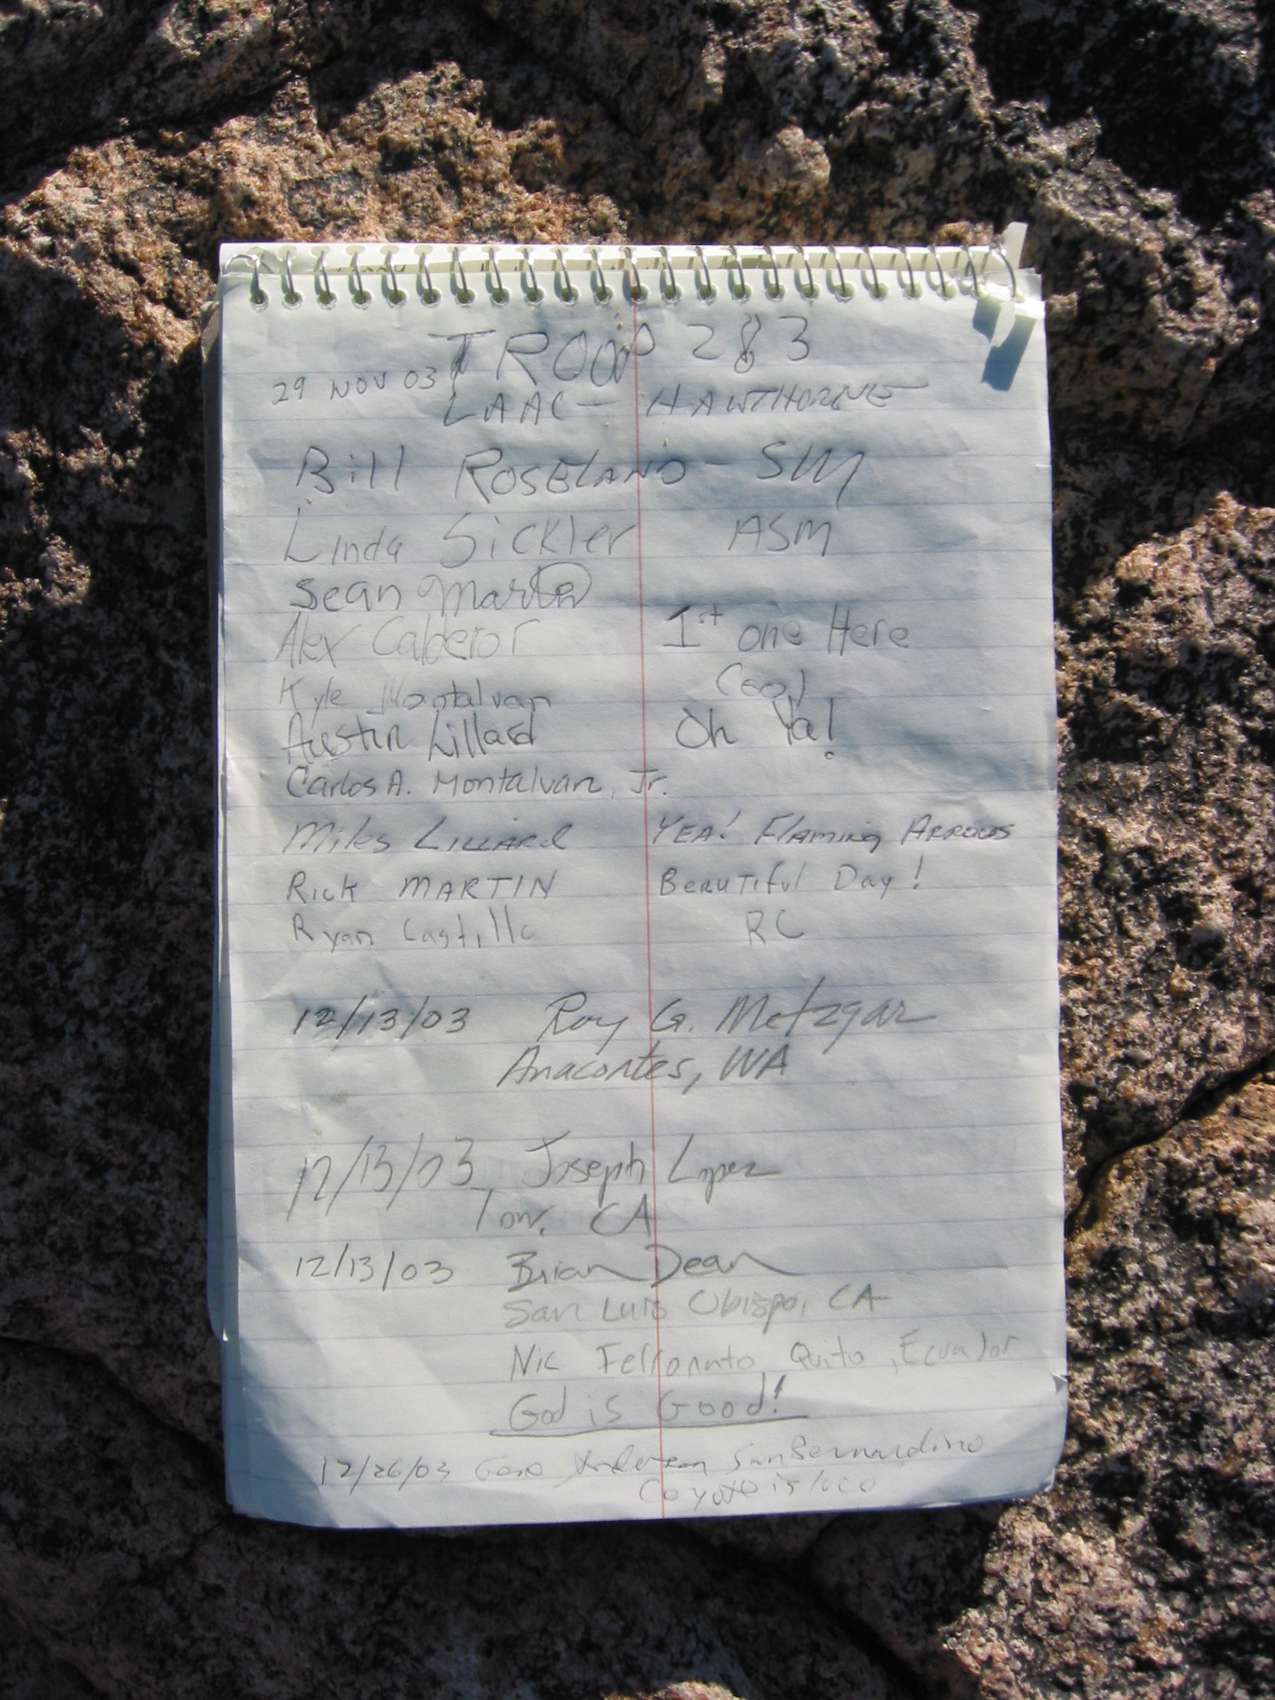 TROOP 283
29 NOV 03
LAAC - HAWTHORNE
Bill ROSELAND - SM
Linda Sickler ASM
Sean Martin
Alex Calderor 1st one Here
Kyle Montalvan Cool
Austin Lillard Oh Ya!
Carlos A. Montalvan, Jr.
Miles LILLARD YEA! Flaming ARROWS
Rick MARTIN Beautiful Day!
Ryan Castillo RC
12/13/03 Roy G. Metzgar
Anacortes, WA
12/13/03 Joseph Lopez
CA
12/13/03 Brian Dean
San Luis Obispo, CA
Nic Quito, Ecuador
God is Good!
12/26/03 San Bernardino
Coyote is loco